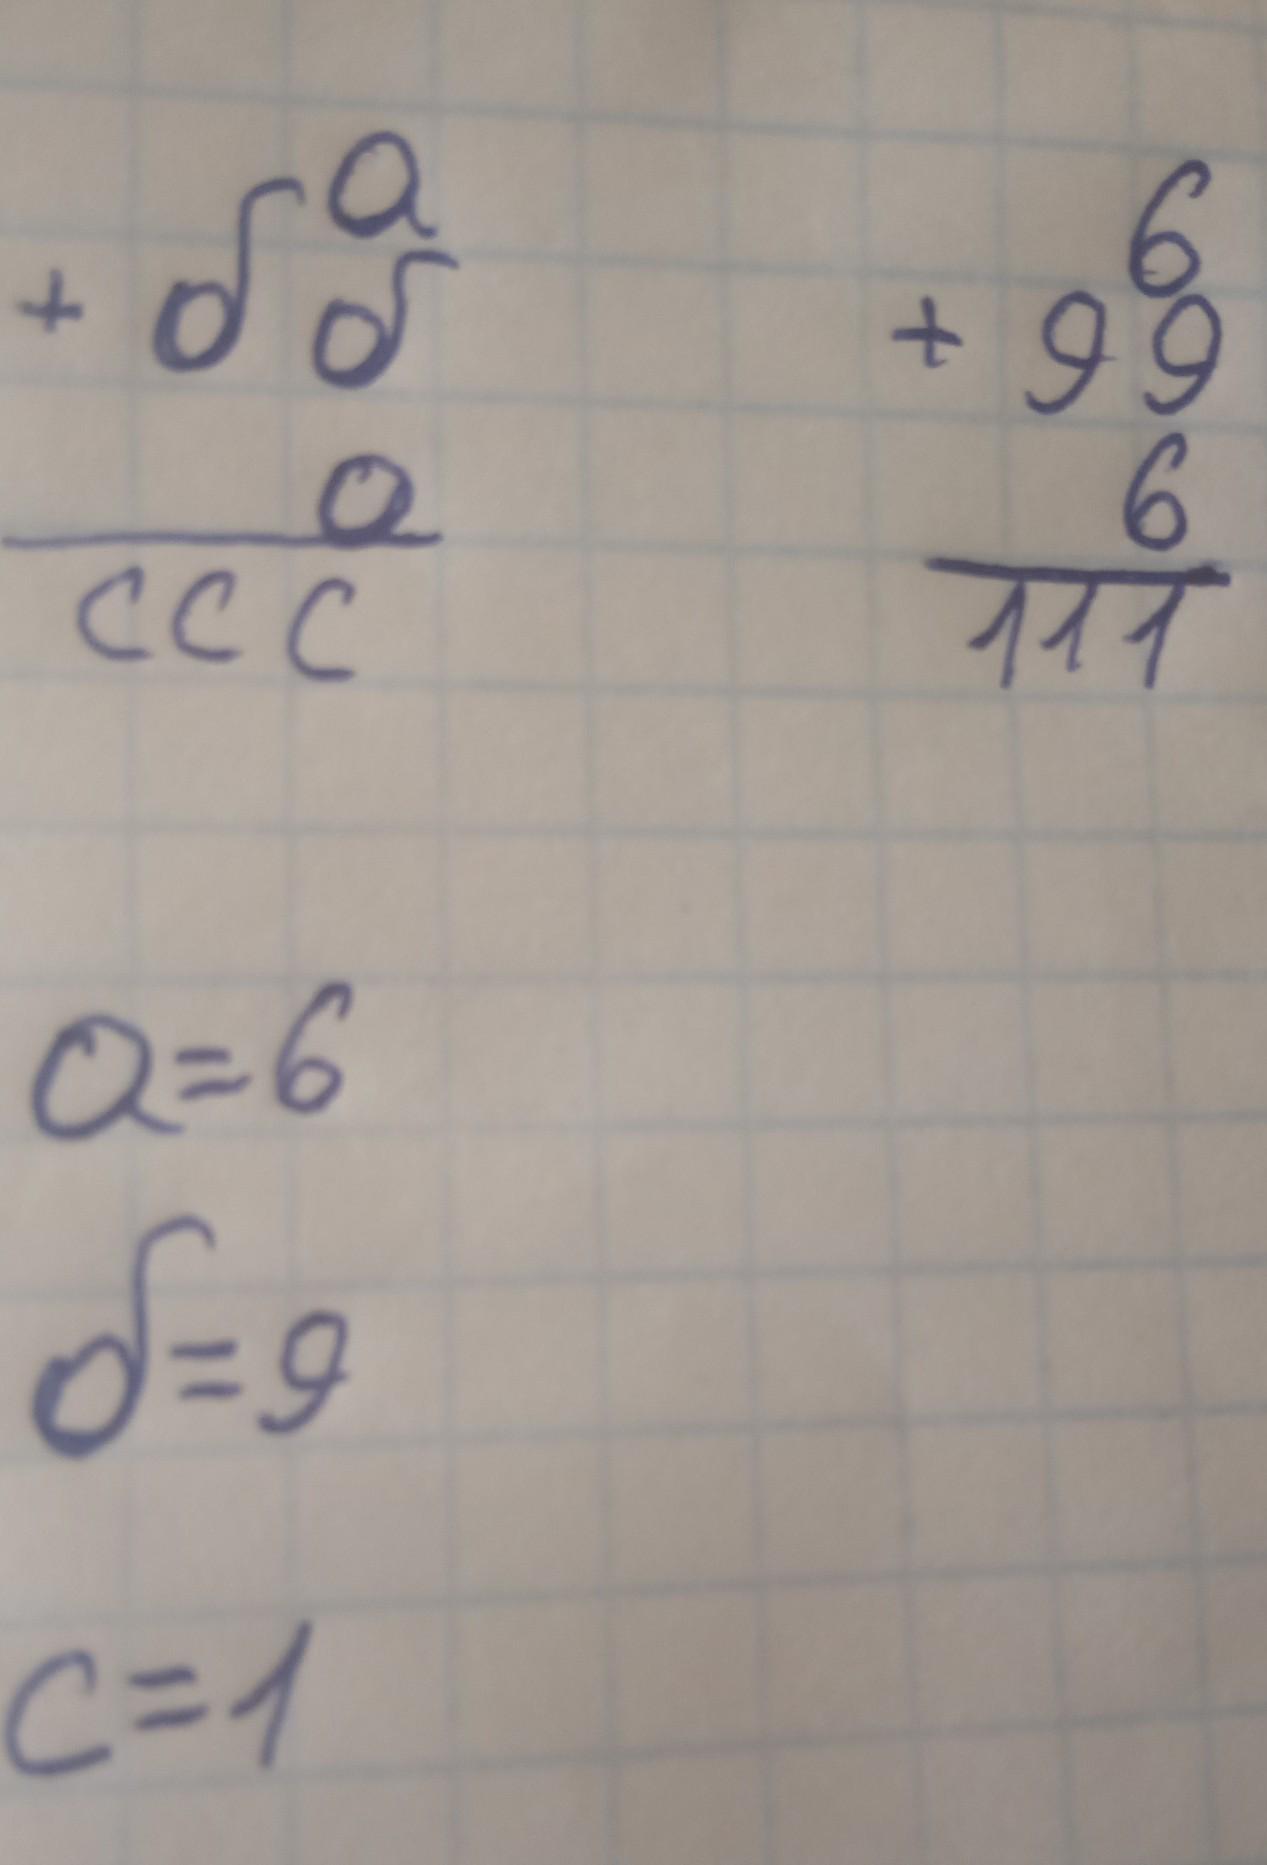 a
+ бб
a
ccc
6
+ 99
6
111
a=6
б=9
c=1